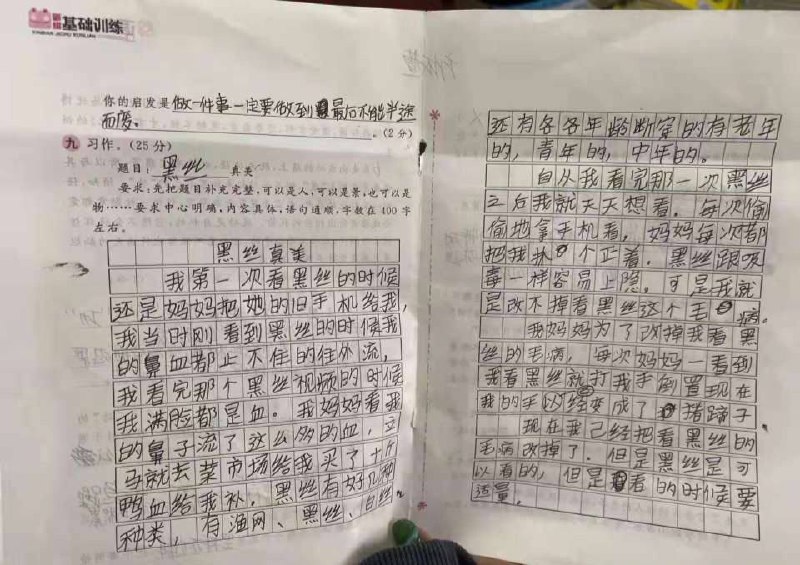 新编基础训练
XINBIAN JICHU XUNLIAN
你的启发是做一件事一定要做到最后不能半途
而废。(2分)
九 习作。(25分)
题目:黑丝真美
要求:先把题目补充完整,可以是人,可以是景,也可以是
物……要求中心明确,内容具体,语句通顺,字数在400字
左右。
黑丝真美
我第一次看黑丝的时候
还是妈妈把她的旧手机给我,
我当时刚看到黑丝的时候我
的鼻血都止不住的往外流,
我看完那个黑丝视频的时候
我满脸都是血。我妈妈看我
的鼻子流了这么多的血,立
马就去菜市场给我买了十斤
鸭血给我补,黑丝有好几种
种类,有渔网、黑丝、白丝,
还有各各年龄断穿的有老年
的,青年的,中年的。
自从我看完那一次黑丝
之后我就天天想看。每次偷
偷地拿手机看,妈妈每次都
把我抓个正着。黑丝跟吸
毒一样容易上隐。可是我就
是改不掉看黑丝这个毛病。
我妈妈为了改掉我看黑
丝的毛病,每次妈妈一看到
我看黑丝就打我手到置现在
我的手以经变成了猪蹄子
现在我己经把看黑丝的
毛病改掉了。但是黑丝是可
以看的,但是看的时候要
适量。